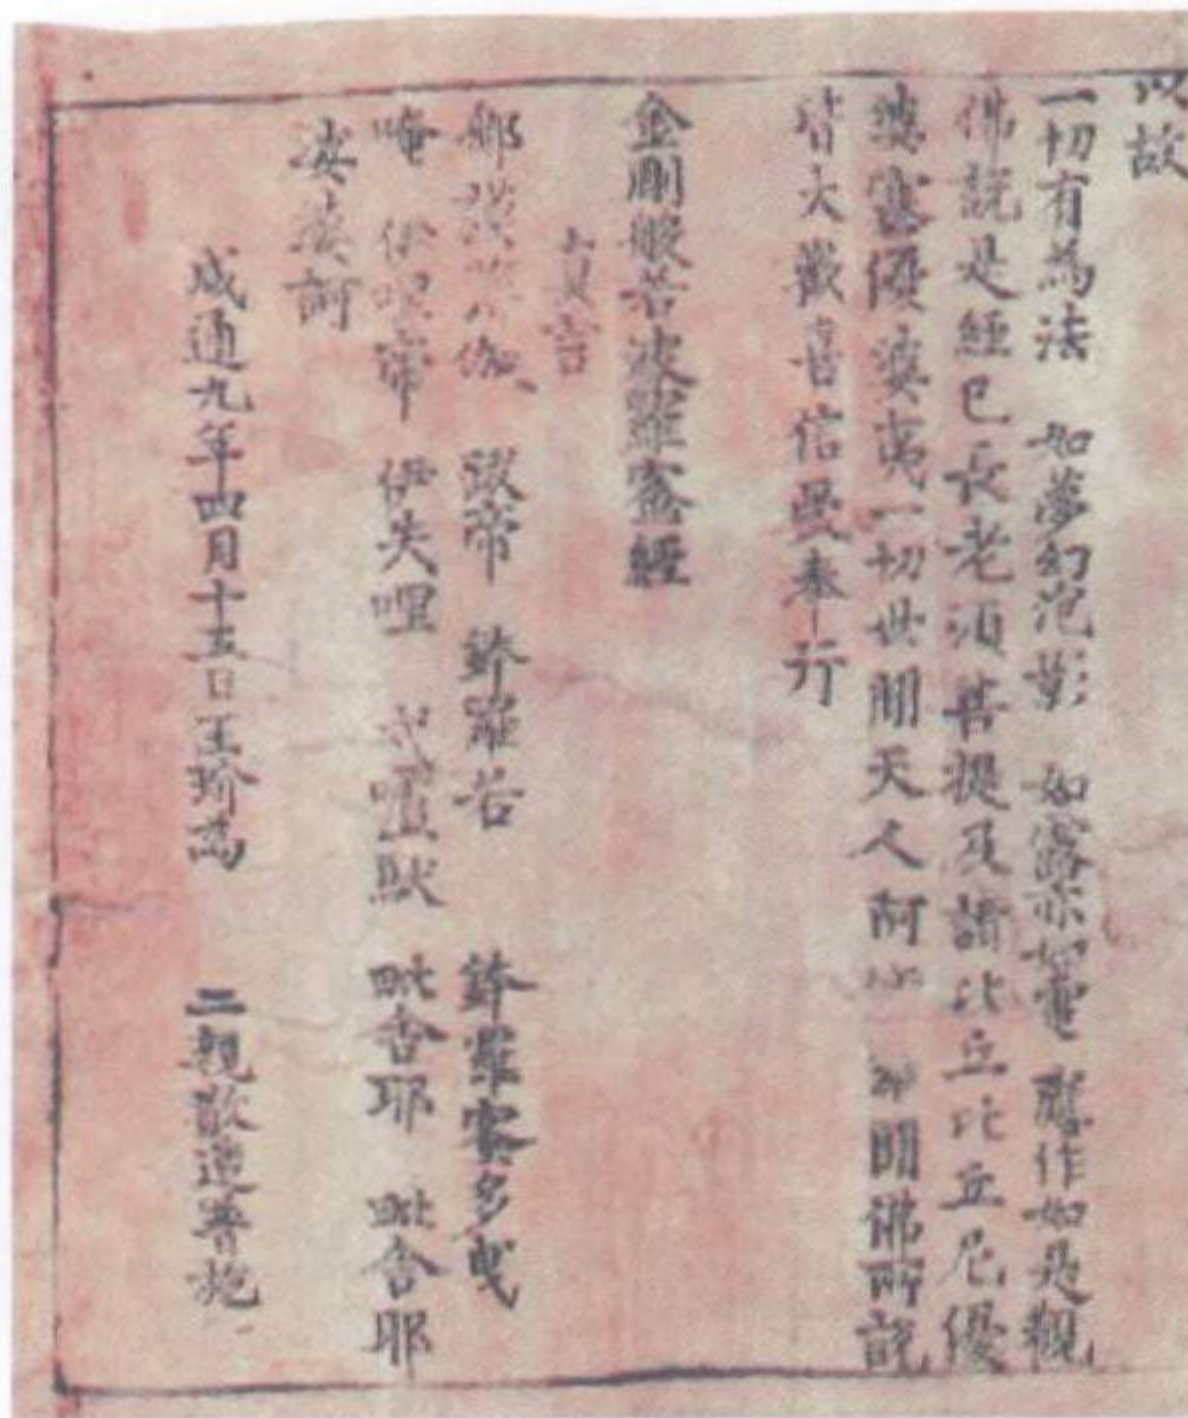 以故
一切有為法　如夢幻泡影　如露亦如電　應作如是觀
佛說是經已長老須菩提及諸比丘比丘尼優
婆塞優婆夷一切世間天人阿 聞佛所說
皆大歡喜信受奉行
金剛般若波羅蜜經
真言
那謨 伽 跋帝　鉢羅若　鉢羅蜜多曳
唵　伊哩帝　伊失哩　戍嚧馱　毗舍耶　毗舍耶
娑婆訶
咸通九年四月十五日王玠為　二親敬造普施